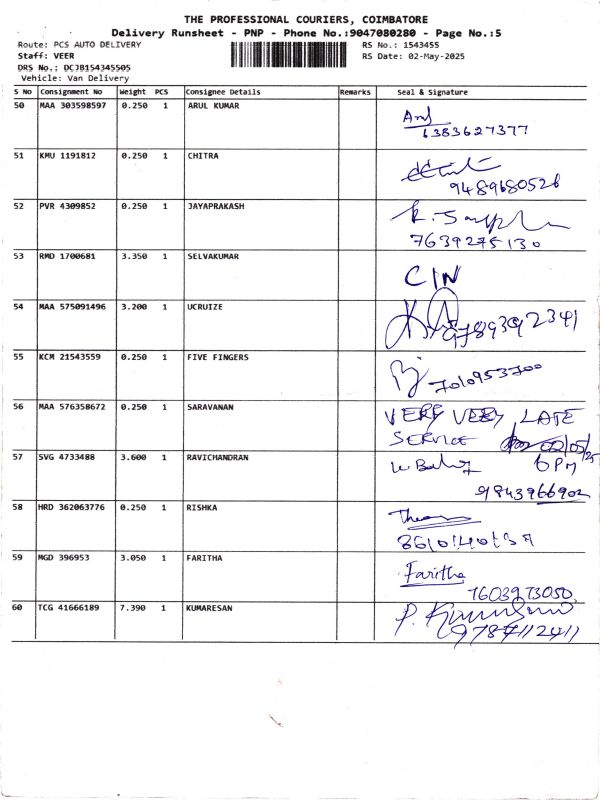 THE PROFESSIONAL COURIERS, COIMBATORE
Delivery Runsheet - PNP - Phone No.:9047080280 - Page No.:5
Route: PCS AUTO DELIVERY RS No.: 1543455
Staff: VEER RS Date: 02-May-2025
DRS No.: DCJB154345505
Vehicle: Van Delivery
S No Consignment No Weight PCS Consignee Details Remarks Seal & Signature
50 MAA 303598597 0.250 1 ARUL KUMAR
6383627377
51 KMU 1191812 0.250 1 CHITRA
9489680526
52 PVR 4309852 0.250 1 JAYAPRAKASH
7639275130
53 RMD 1700681 3.350 1 SELVAKUMAR
CIN
54 MAA 575091496 3.200 1 UCRUIZE
9789392341
55 KCM 21543559 0.250 1 FIVE FINGERS
7010953700
56 MAA 576358672 0.250 1 SARAVANAN VERY VERY LATE
SERVICE 02/05/25
57 SVG 4733488 3.600 1 RAVICHANDRAN 6 PM
9843966902
58 HRD 362063776 0.250 1 RISHKA
59 MGD 396953 3.050 1 FARITHA
Faritha
7603973050
60 TCG 41666189 7.390 1 KUMARESAN